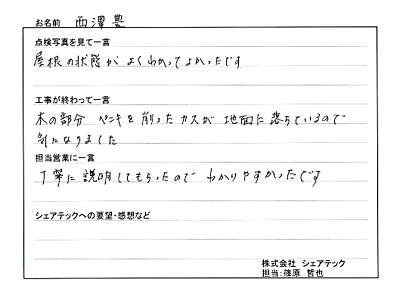 お名前 西澤豊
点検写真を見て一言
屋根の状態がよくわかってよかったです
工事が終わって一言
木の部分 ペンキを削ったカスが地面に落ちているので
気になりました
担当営業に一言
丁寧に説明してもらったのでわかりやすかったです
シェアテックへの要望・感想など
株式会社 シェアテック
担当:篠原 哲也